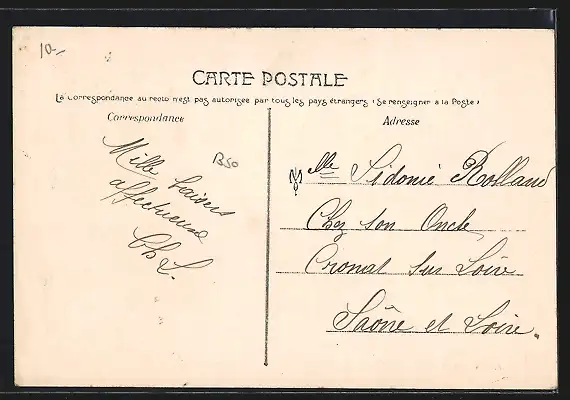 10-
CARTE POSTALE
La Correspondance au recto n'est pas autorisée par tous les pays étrangers (Se renseigner à la Poste)
Correspondance
Mille baisers
affectueux
Ch L.
B50
Adresse
Mlle Sidonie Rolland
Chez son Oncle
Cronat sur Loire
Saône et Loire.